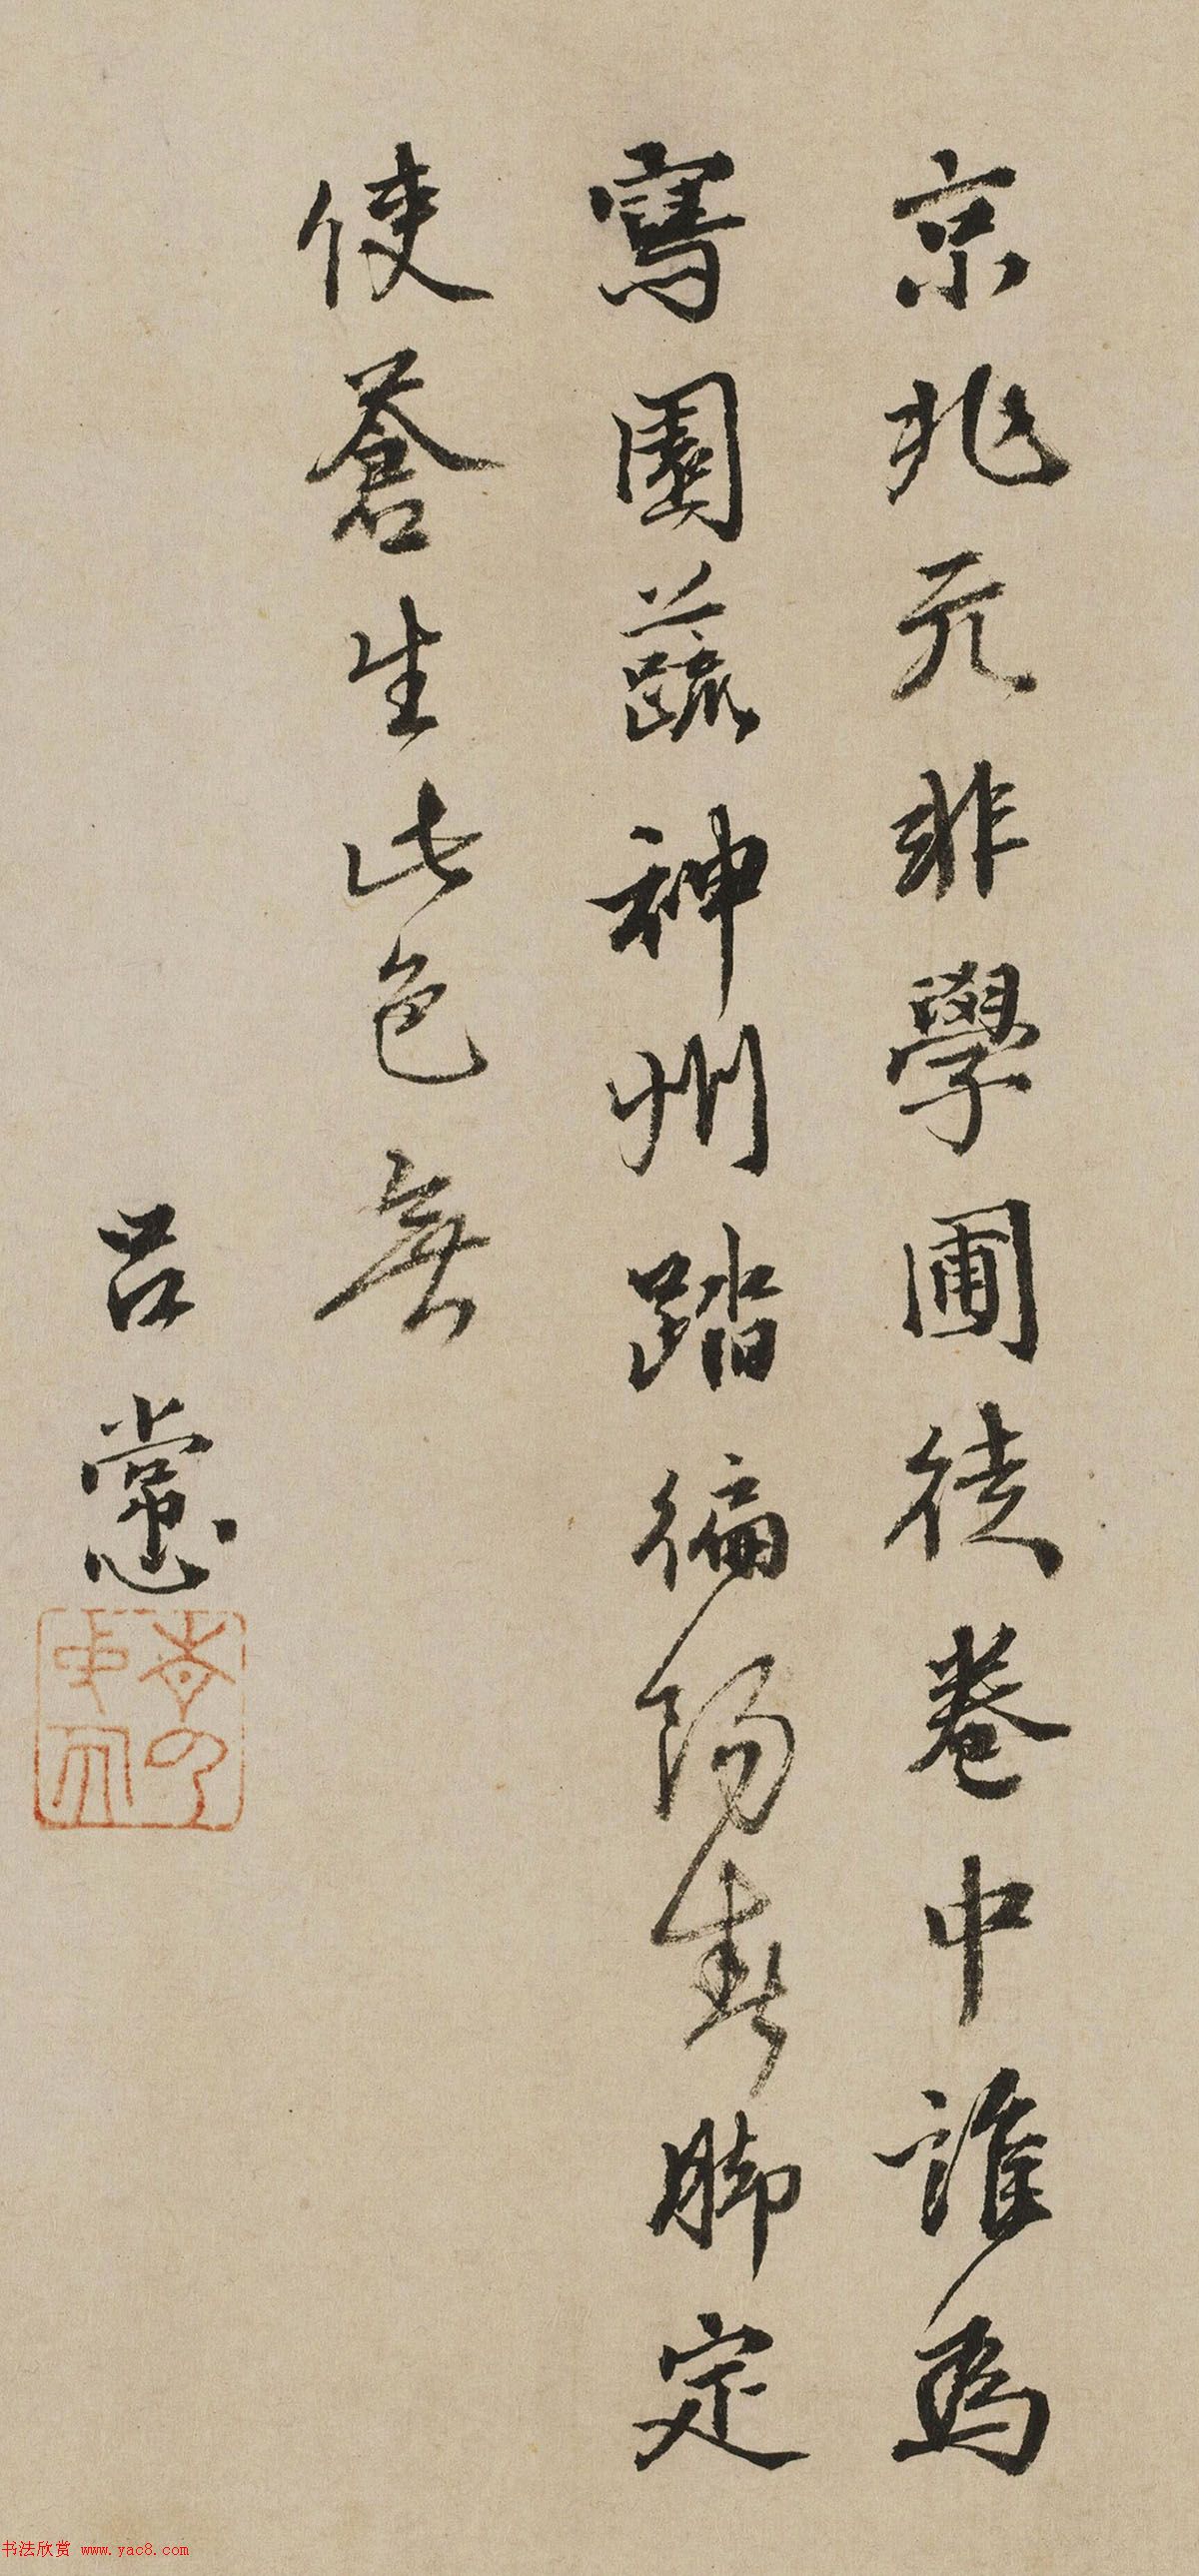 京兆元非學圃徒卷中誰為
寫園蔬神州踏徧陽春脚定
使蒼生此色無
吕㦂
书法欣赏 www.yac8.com